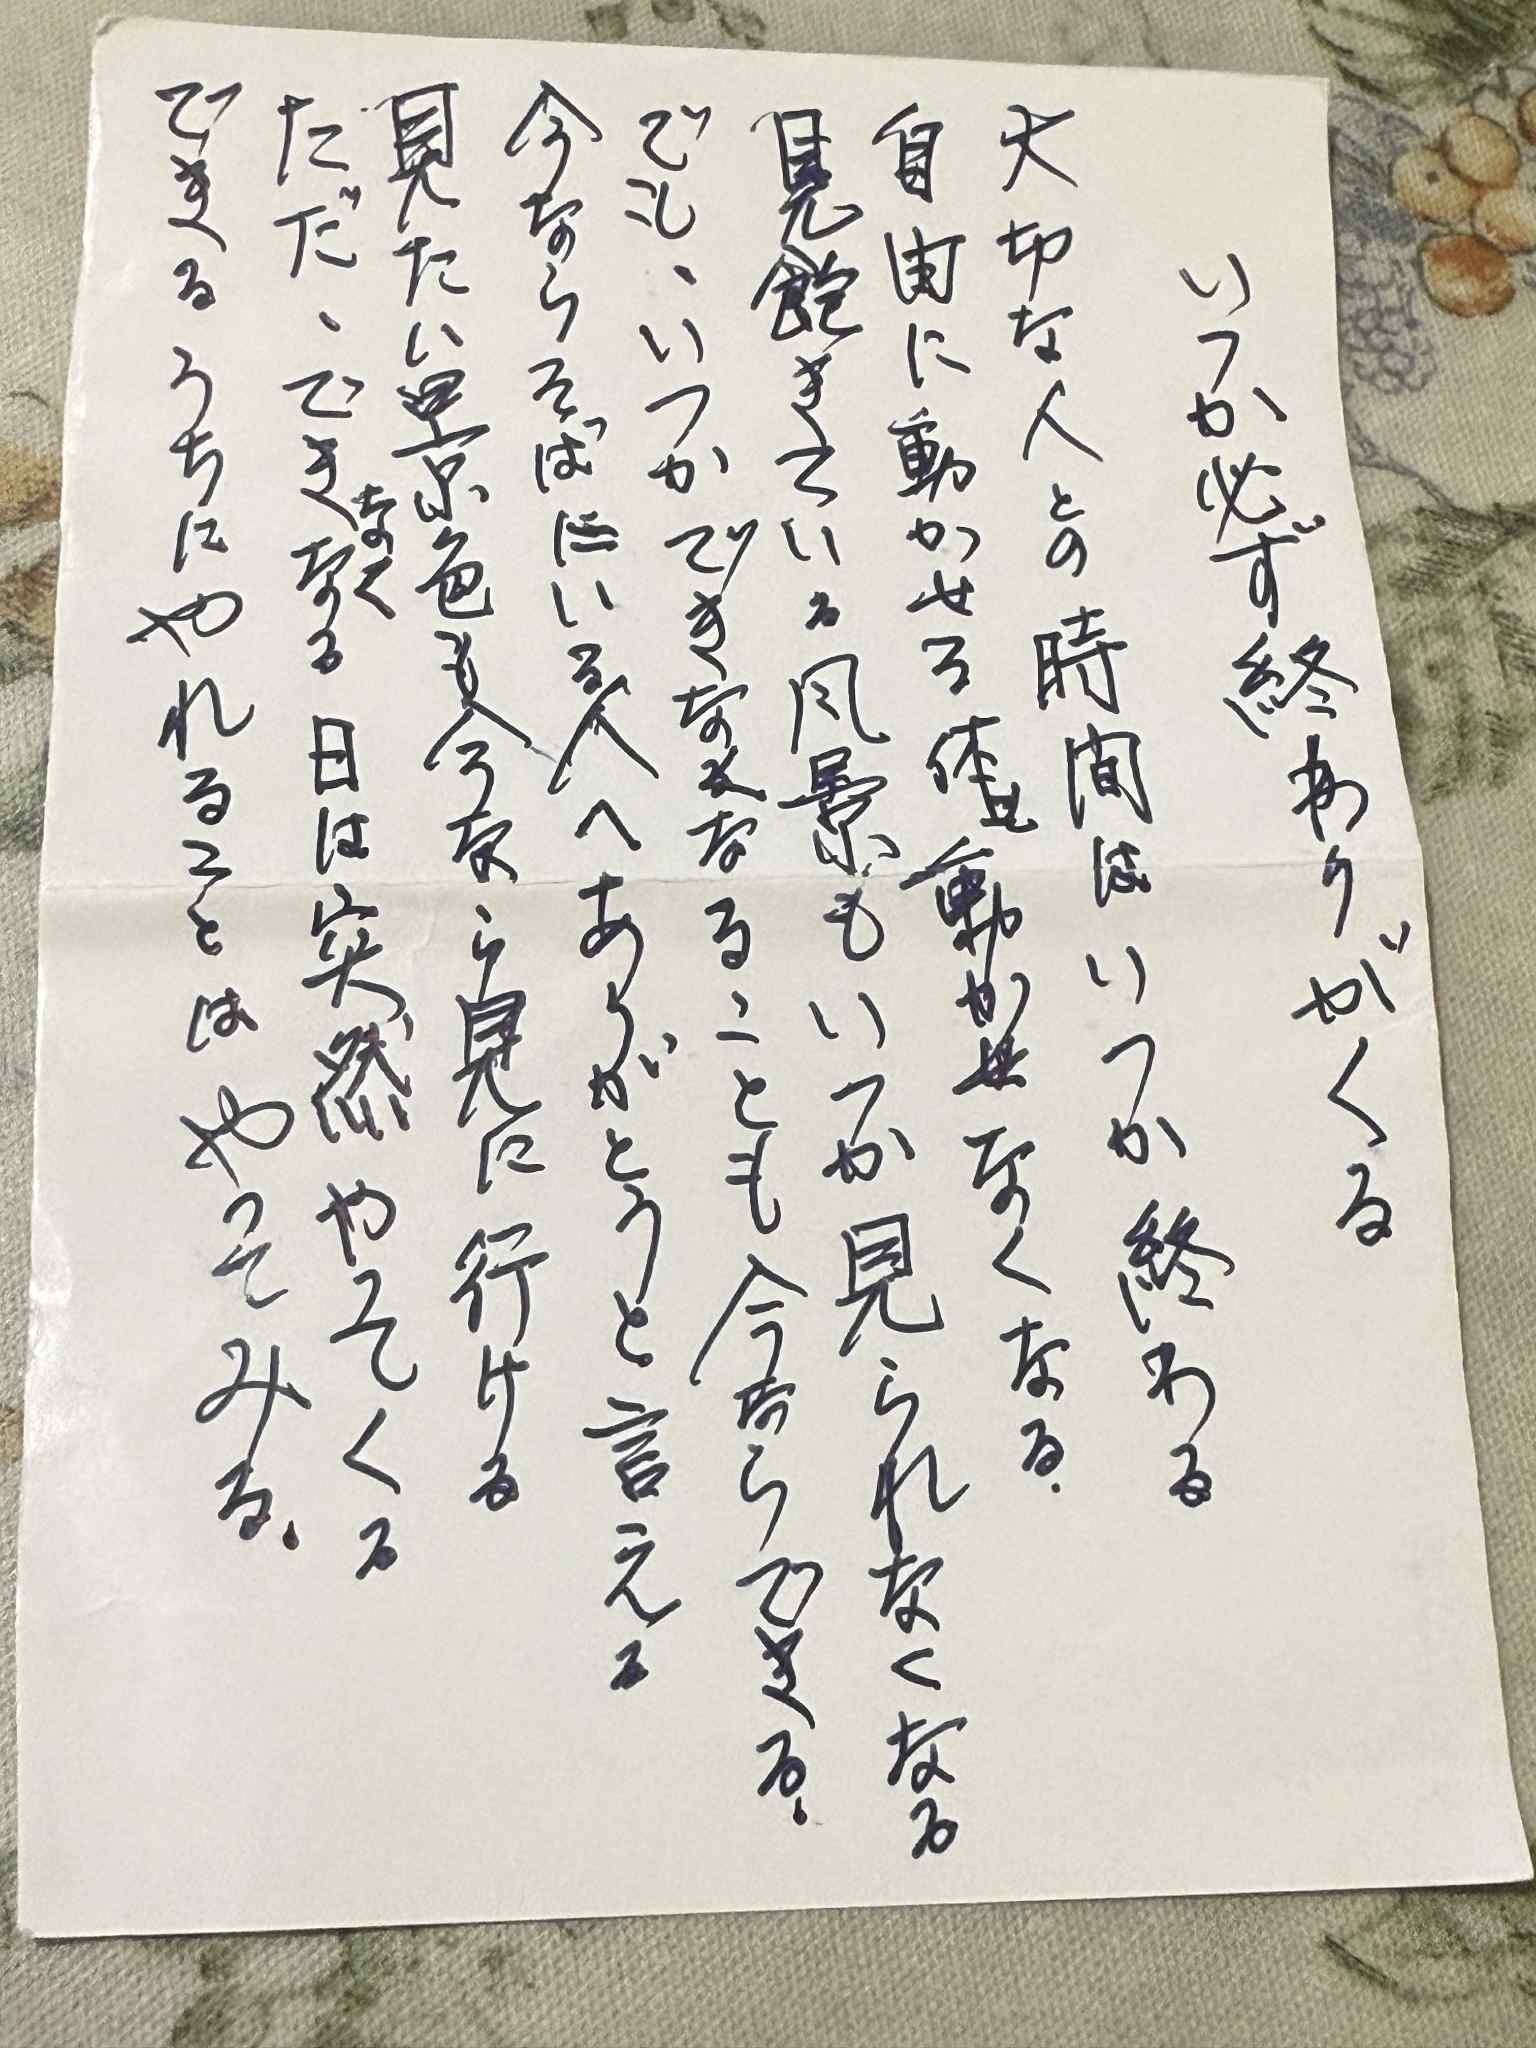 いつか必ず終わりがくる
大切な人との時間はいつか終わる
自由に動かせる体も動かせなくなる.
見飽きている風景もいつか見られなくなる
でも、いつかできなくなることも今ならできる.
今ならそばにいる人へありがとうと言える
見たい景色も今なら見に行ける
ただ、できなくなる日は突然やってくる
できるうちにやれることはやってみる.